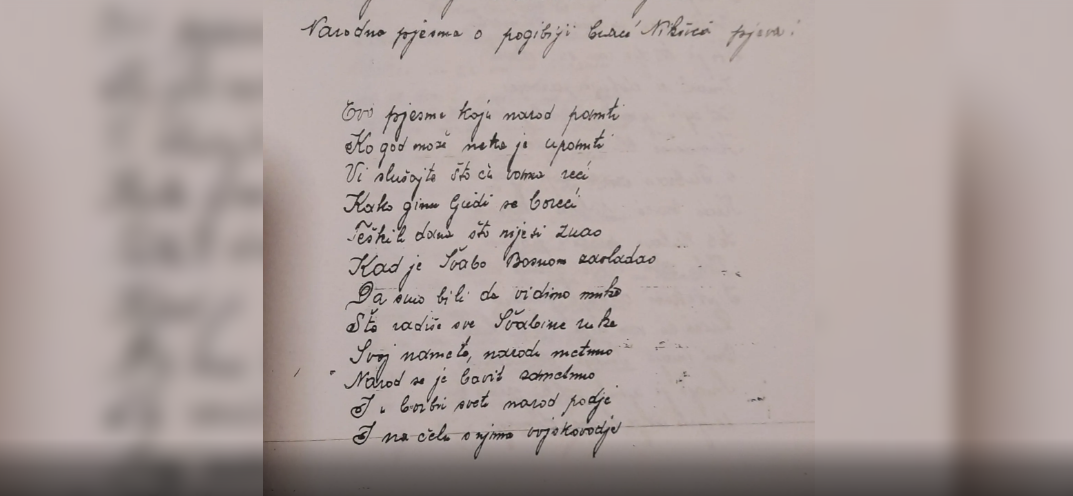 Narodna pjesma o pogibiji Nikšića pjeva:
Evo pjesme koju narod pamti
Ko god može neka je upamti
Vi slušajte što ću vama reći
Kako ginu ljudi se boreći
Teškik dana što nijesi znao
Kad je Švabo Bosnom zavladao
Da smo bili da vidimo muke
Što radiše sve Švabine ruke
Svoj nameto, narodu metnuo
Narod se je bavit zametnuo
I u borbu sveti narod podje
I na čelu s njima vojskovodje